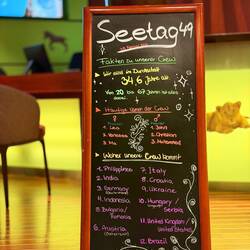 Seetag 49
Fakten zu unserer Crew
Wir sind im Durchschnitt
34,6 Jahre alt.
Von 20 bis 67 Jahren ist alles
dabei.
Häufige Namen der Crew
1. Lea
2. Vanessa
3. Ma
1. Jan
2. Christian
3. Muhammad
Woher unsere Crew kommt
1. Philippinen
2. India
3. Germany
4. Indonesia
5. Bulgaria/
Romania
6. Austria
7. Italy
8. Croatia
9. Ukraine
10. Hungary
Serbia
11. United Kingdom/
United States
12. Brazil